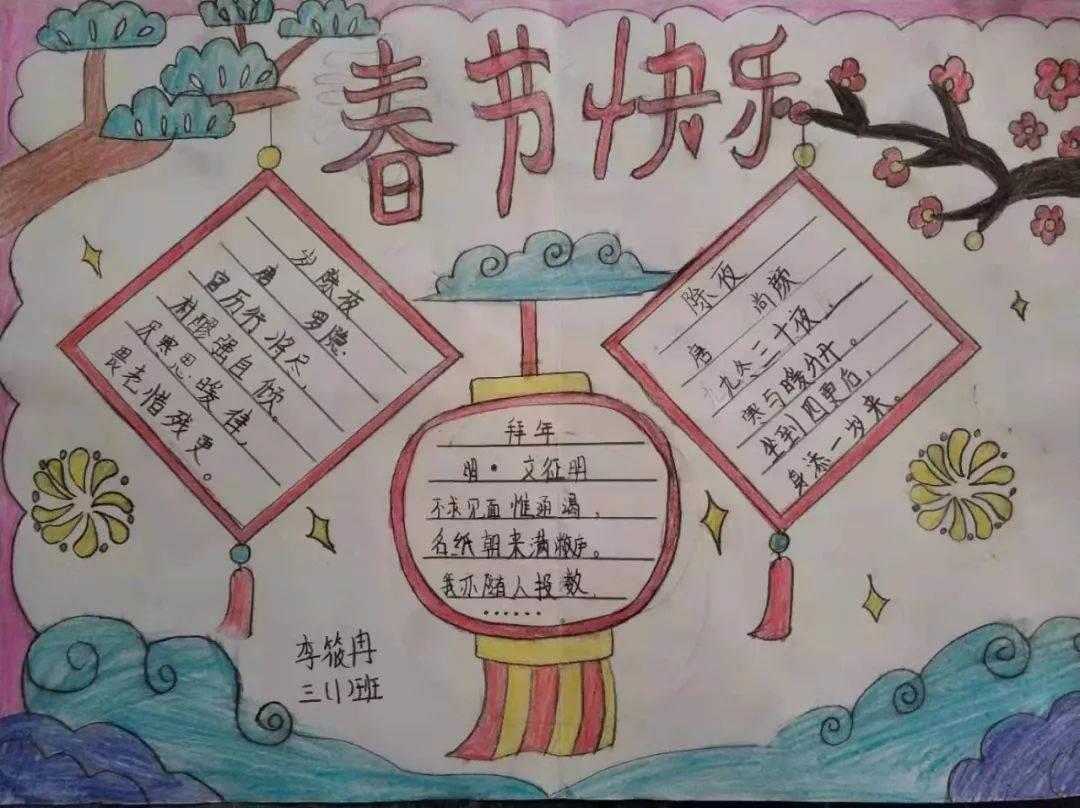 春节快乐
岁除夜
唐 罗隐.
官历行将尽，
村醪强自倾。
厌寒思暖律，
畏老惜残更。
拜年
明·文征明
不求见面惟通谒，
名纸朝来满敝庐。
我亦随人投数，
……。
除夜
唐 尚颜
九冬三十夜，
寒与暖分开。
坐到四更后，
身添一岁来。
李筱冉
三(1)班